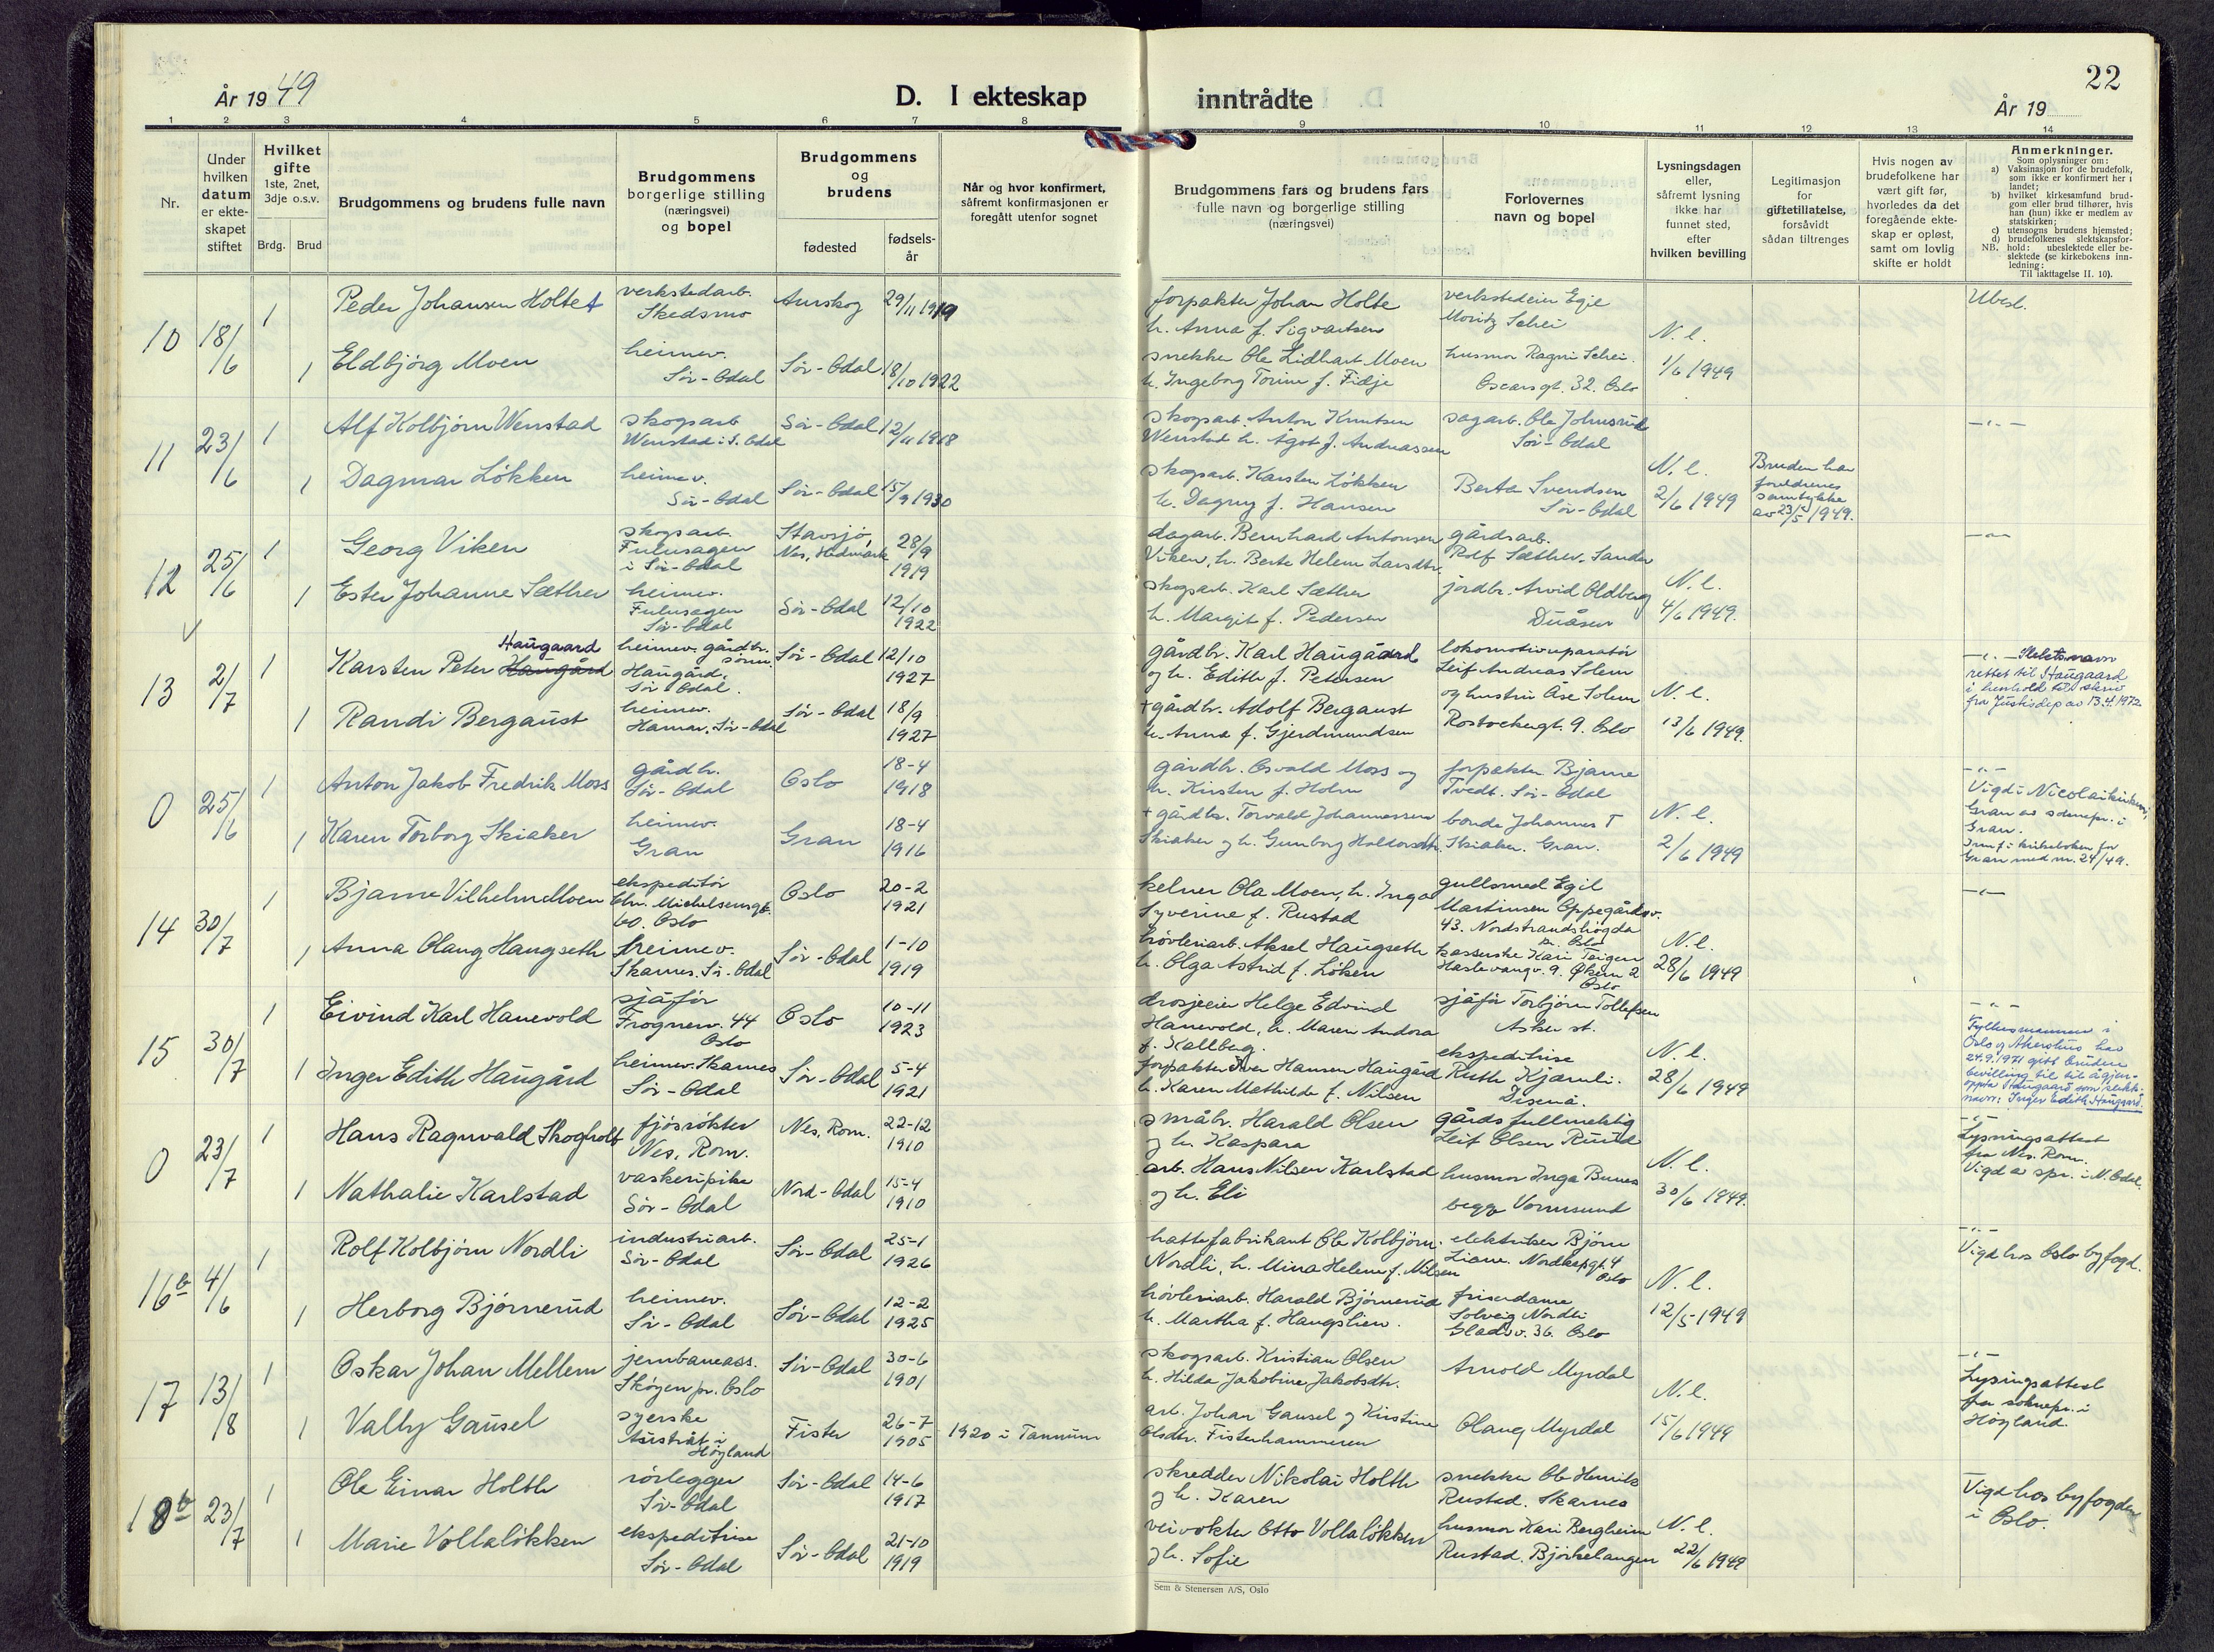 År 1949
D. I ekteskap inntrådte
År 19
22
1 2 3 4 5 6 7 8 9 10 11 12 13 14
Nr.
Under hvilken datum er ekteskapet stiftet
Hvilket gifte
1ste, 2net, 3dje o.s.v.
Brdg. Brud
Brudgommens og brudens fulle navn
Brudgommens borgerlige stilling (næringsvei) og bopel
Brudgommens og brudens
fødested
fødselsår
Når og hvor konfirmert, såfremt konfirmasjonen er foregått utenfor sognet
Brudgommens fars og brudens fars fulle navn og borgerlige stilling (næringsvei)
Forlovernes navn og bopel
Lysningsdagen eller, såfremt lysning ikke har funnet sted, efter hvilken bevilling
Legitimasjon for giftetillatelse, forsåvidt sådan tiltrenges
Hvis nogen av brudefolkene har vært gift før, hvorledes da det foregående ekteskap er opløst, samt om lovlig skifte er holdt
Anmerkninger.
Som oplysninger om:
a) Vaksinasjon for de brudefolk, som ikke er konfirmert her i landet;
b) hvilket kirkesamfund brudgom eller brud tilhører, hvis han (hun) ikke er medlem av statskirken;
c) utensogns brudens hjemsted;
d) brudefolkenes slektskapsforhold: ubeslektede eller beslektede (se kirkebokens innledning:
NB. Til iakttagelse II. 10).
10 18/6
1 Peder Johansen Holte
verkstedarb. Skedsmo
Aurskog 29/11 1919
forpakter Johan Holte
h. Anna f. Sigvartsen
verkstedeier Egil
Moritz Schei
Ubesl.
1 Eldbjørg Moen
heimev. Sør-Odal
Sør-Odal 18/10 1922
snekker Ole Lidhart Moen
h. Ingeborg Torine f. Fidje
husmor Ragni Schei.
Oscarsgt. 32. Oslo
N. l. 1/6 1949
11 23/6
1 Alf Kolbjørn Wenstad
skogsarb Wenstad i S. Odal
Sør-Odal 12/11 1918
skogsarb. Anton Knutsen
Wenstad h. Ågot f. Andreassen
sagarb. Ole Johnsrud
Sør-Odal
1 Dagmar Løkken
heimev. Sør-Odal
Sør-Odal 15/9 1930
skogsarb. Karsten Løkken
h. Dagny f. Hansen
Berta Svendsen
Sør-Odal
N. l. 2/6 1949
Bruden har foreldrenes samtykke av 23/5 1949.
12 25/6
1 Georg Viken
skogsarb. Fulusagen i Sør-Odal
Stavsjø, Nes, Hedmark 28/9 1919
dagarb. Bernhard Antonsen
Viken, h. Berte Helene Larsdtr.
gårdsarb.
Rolf Sæther. Sander
1 Ester Johanne Sæther
heimev. Fulusagen Sør-Odal
Sør-Odal 12/10 1922
skogsarb. Karl Sæther
h. Margit f. Pedersen
jordbr. Arvid Oldberg
Duåsen
N. l. 4/6 1949.
13 2/7
1 Karsten Peter Haugård Haugaard
heimev. gårdbr. sønn. Haugård. Sør-Odal.
Sør-Odal 12/10 1927
gårdbr. Karl Haugaard
og h. Edith f. Petersen
lokomotivreparatør
Leif Andreas Solem
Slektsnavn rettet til Haugaard i henhold til skriv fra Justisdep av 13.4.1972
1 Randi Bergaust
heimev. Hamar. Sør-Odal
Sør-Odal 18/9 1927
+ gårdbr. Adolf Bergaust
h. Anna f. Gjerdmundsen
og hustru Åse Solem
Rostockergt. 9. Oslo
N. l. 13/6 1949.
0 25/6
1 Anton Jakob Fredrik Moss
gårdbr. Sør-Odal
Oslo 18-4 1918
gårdbr. Osvald Moss og
h. Kirsten f. Holm
forpakter Bjarne
Tvedt. Sør-Odal
Vigd i Nicolaikirken, Gran av sokneprr. i Gran. Innf. i kirkeboken for Gran med nr. 24/49.
1 Karen Torborg Skiaker
heimev. Gran
Gran 18-4 1916
+ gårdbr. Torvald Johannessen
Skiaker og h. Gunborg Haldorsdtr.
bonde Johannes T
Skiaker. Gran.
N. l. 2/6 1949
14 30/7
1 Bjarne Vilhelm Moen
ekspeditør Chr. Michelsensgt. 60. Oslo
Oslo 20-2 1921
kelner Ola Moen, h. Inga
Syverine f. Rustad
gullsmed Egil
Martinsen Oppegårdsv.
43. Nordstrandshøgda
pr. Oslo
1 Anna Olaug Haugseth
heimev. Skarnes. Sør-Odal
Sør-Odal 1-10 1919
høvleriarb. Aksel Haugseth
h. Olga Astrid f. Løken
kasserske Kari Teigen
Haslevangv. 9. Økern 2
Oslo
N. l. 28/6 1949
15 30/7
1 Eivind Karl Hanevold
sjåfør Frognerv. 44 Oslo
Oslo 10-11 1923
drosjeeier Helge Edvind
Hanevold, h. Maren Andora
f. Kallberg.
sjåfør Torbjørn Tollefsen
Asker st.
Fylkesmannen i Oslo og Akershus har 24.9.1971 gitt bruden bevilling til til å gjenoppta Haugaard som slektsnavn: Inger Edith Haugaard.
1 Inger Edith Haugård
heimev. Skarnes Sør-Odal
Sør-Odal 5-4 1921
forpakter Iver Hansen Haugård
h. Karen Mathilde f. Nilsen
ekspeditrise
Ruth Kjærnli.
Disenå.
N. l. 28/6 1949
0 23/7
1 Hans Ragnvald Skogholt
fjøsrøkter Nes, Rom.
Nes, Rom. 22-12 1910
småbr. Harald Olsen
og h. Kaspara
gårdsfullmektig
Leif Olsen Ruud
Lysningsattest fra Nes. Rom. Vigd av spr. i N. Odal.
1 Nathalie Karlstad
vaskeripike Sør-Odal
Nord-Odal 15-4 1910
arb. Hans Nilsen Karlstad
og h. Eli
husmor Inga Bunes
begge Vormsund
N. l. 30/6 1949.
16b 4/6
1 Rolf Kolbjørn Nordli
industriarb. Sør-Odal
Sør-Odal 25-1 1926
hattefabrikant Ole Kolbjørn
Nordli, h. Mina Helene f. Nilsen
elektriker Bjørn
Liane. Nordkapgt. 4
Oslo
Vigd hos Oslo byfogd.
1 Herborg Bjørnerud
heimev. Sør-Odal
Sør-Odal 12-2 1925
høvleriarb. Harald Bjørnerud
h. Martha f. Haugslien.
friserdame
Solveig Nordli
Gladsv. 36. Oslo
N. l. 12/5-1949
17 13/8
1 Oskar Johan Mellem
jernbaneass. Skøyen pr. Oslo
Sør-Odal 30-6 1901
skogsarb. Kristian Olsen
h. Hilda Jakobine Jakobsdtr.
Arnold Myrdal
Lysingsattest fra soknepr. i Høyland.
1 Vally Gausel
syerske Austråt i Høyland
Fister 26-7 1905
1920 i Tannum
arb. Johan Gausel og Kirstine
Olsdtr. Fisterhammeren
Olaug Myrdal
N. l. 15/6 1949
18b 23/7
1 Ole Einar Holth
rørlegger Sør-Odal
Sør-Odal 14-6 1917
skredder Nikolai Holth
og h. Karen
snekker Ole Henriks
Rustad. Skarnes
Vigd hos byfogden i Oslo.
1 Marie Vollaløkken
ekspeditrise Sør-Odal
Sør-Odal 21-10 1919
veivokter Otto Vollaløkken
og h. Sofie
husmor Kari Bergheim
Rustad. Bjørkelangen
N. l. 22/6 1949
Sem & Stenersen A/S, Oslo